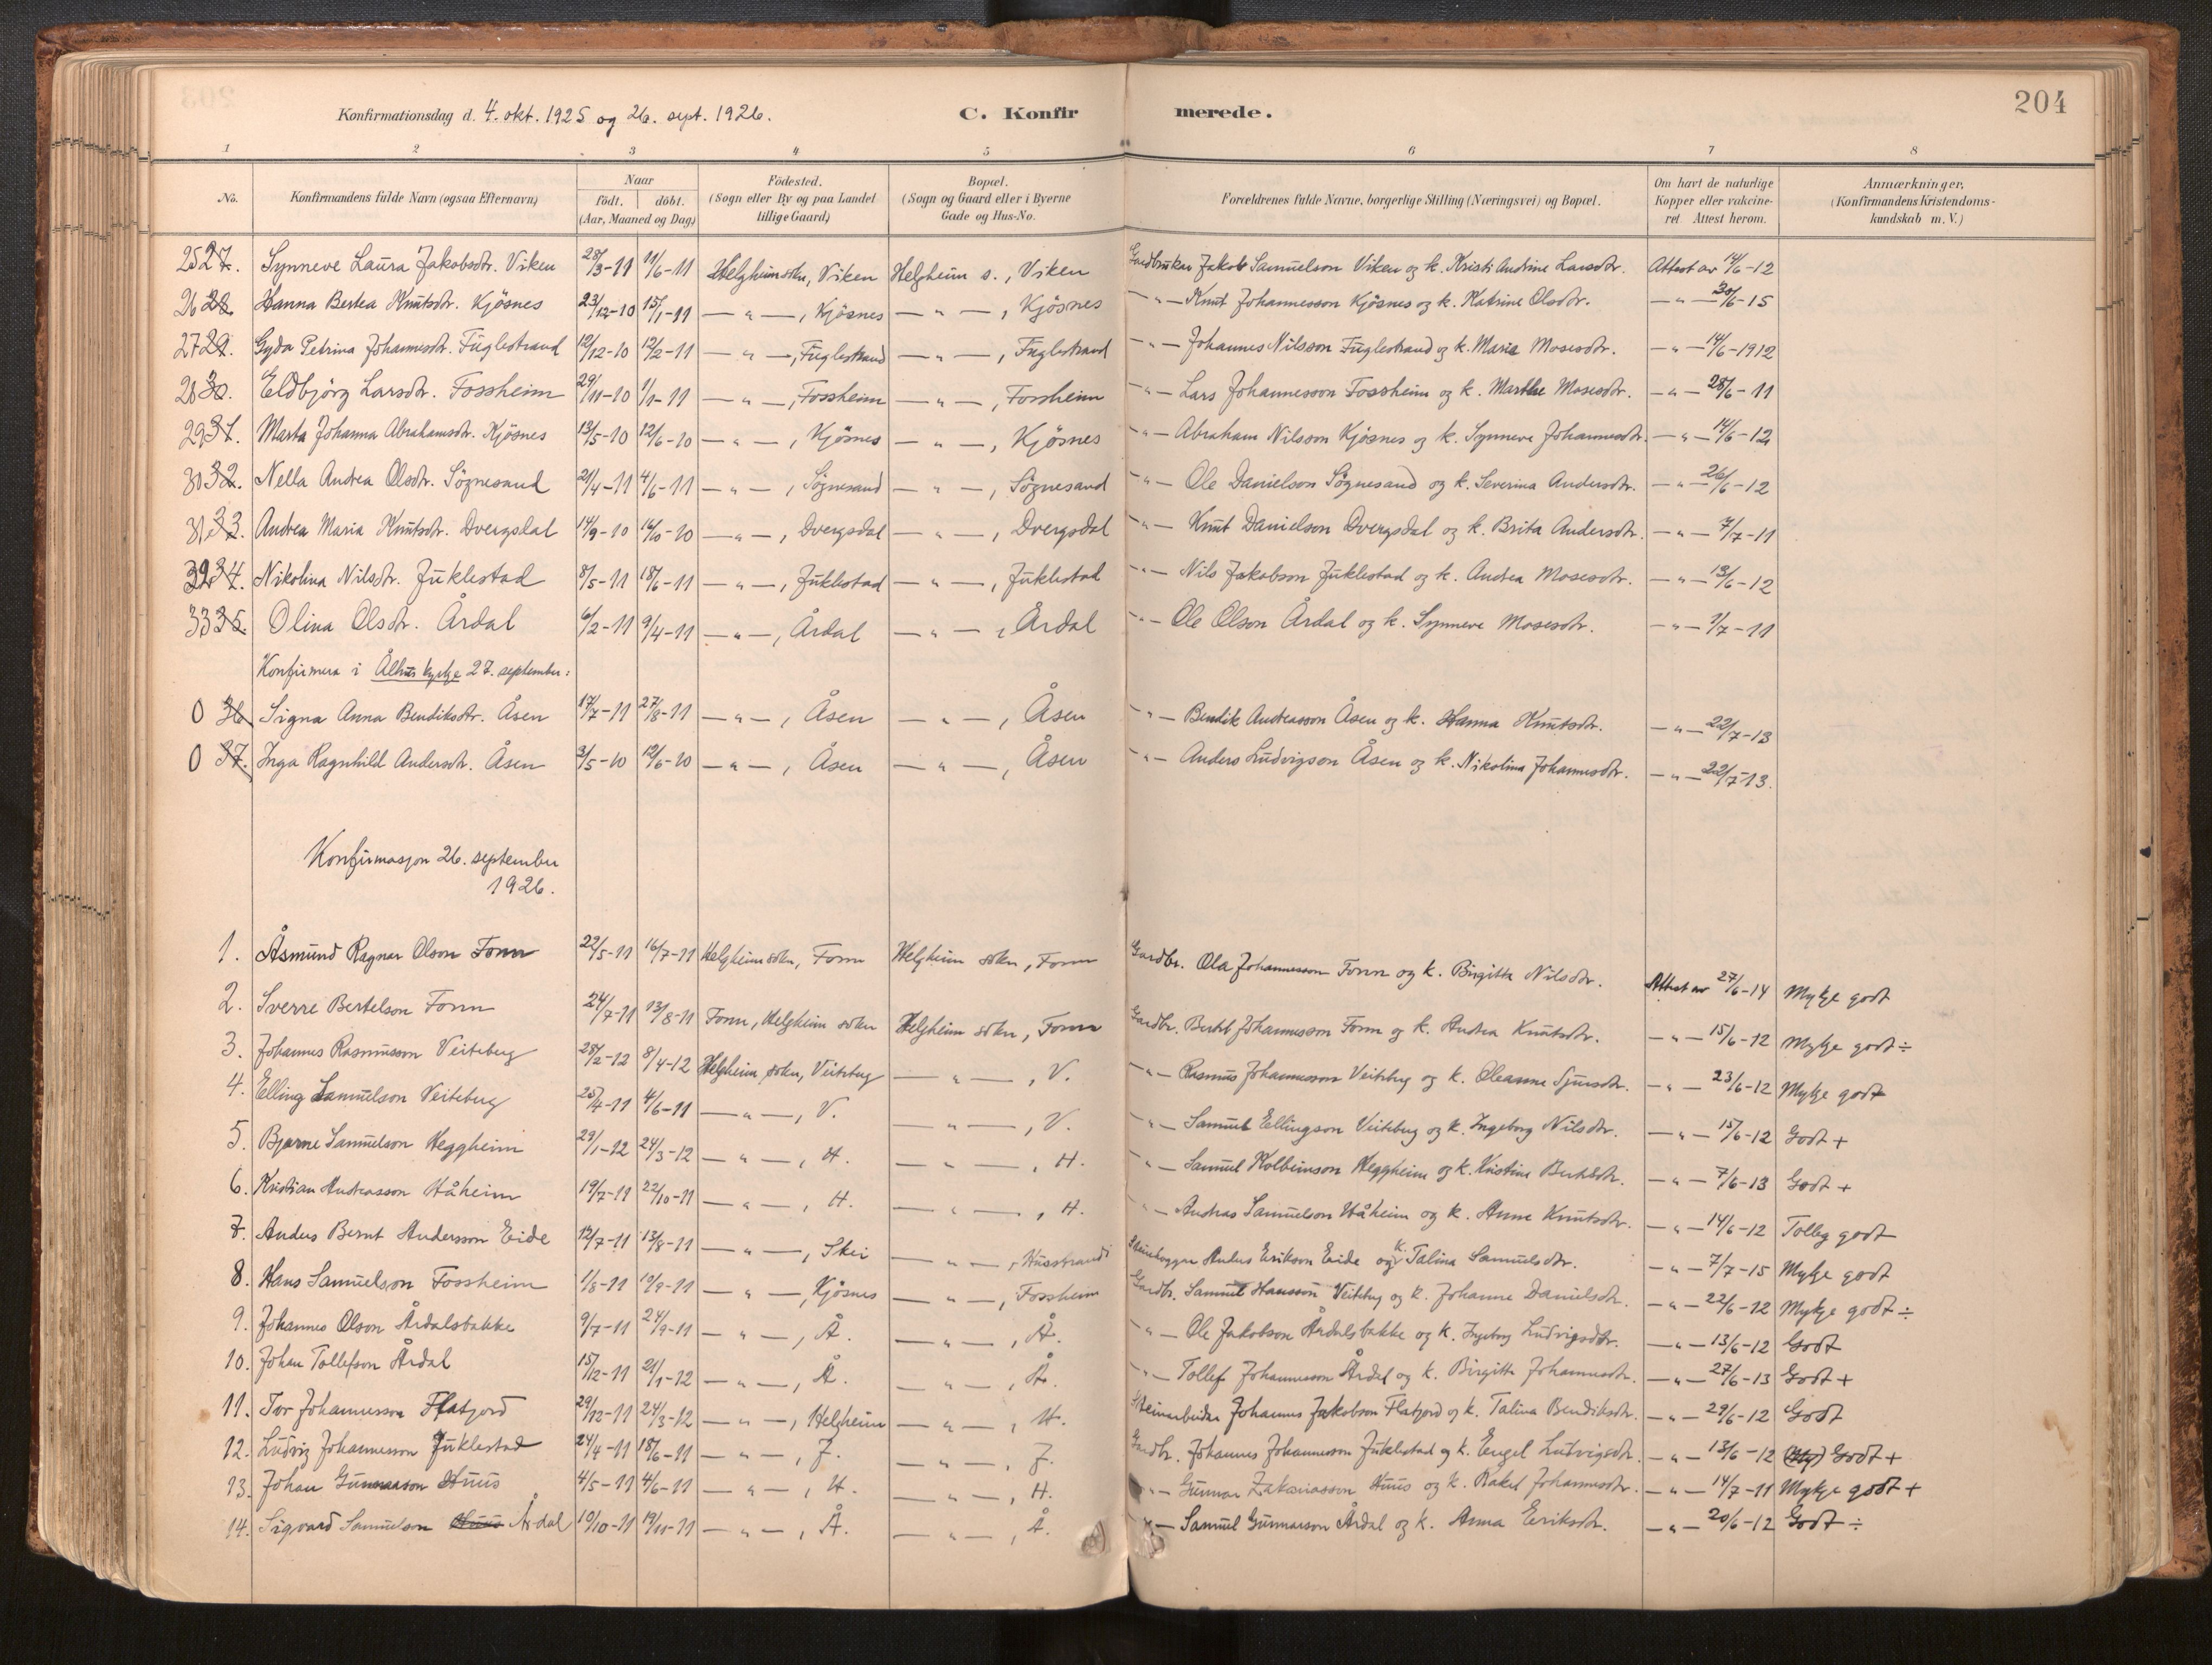 204
Konfirmationsdag d. 4. okt. 1925 og 26. sept. 1926. C. Konfirmerede.
1 2 3 4 5 6 7 8
No. Konfirmandens fulde Navn (ogsaa Efternavn) Naar födt. döbt. (Aar, Maaned og Dag) Födested. (Sogn eller By og paa Landet tillige Gaard) Bopæl. (Sogn og Gaard eller i Byerne Gade og Hus-No. Forældrenes fulde Navne, borgerlige Stilling (Næringsvei) og Bopæl. Om havt de naturlige Kopper eller vakcineret. Attest herom. Anmærkninger, (Konfirmandens Kristendomskundskab m. V.)
25 27. Synneve Laura Jakobsdtr. Viken 28/3-11 11/6-11 Helgheim sokn, Viken Helgheim s., Viken Gardbruker Jakob Samuelson Viken og k. Kristi Andrine Larsdtr. Attest av 14/6-12
26 28. Hanna Bertea Knutsdtr. Kjösnes 23/12-10 15/1-11 — " —, Kjösnes — " —, Kjösnes - " - Knut Johannesson Kjösnes og k. Katrine Olsdtr. — " — 30/6-15
27 29. Gyda Petrina Johannesdtr. Fuglestrand 12/12-10 12/2-11 — " —, Fuglestrand — " —, Fuglestrand - " - Johannes Nilsson Fuglestrand og k. Maria Mosesdtr. — " — 14/6-1912
28 30. Eldbjörg Larsdtr. Fossheim 29/11-10 1/1-11 — " —, Fossheim — " —, Fossheim - " - Lars Johannesson Fossheim og k. Marthe Mosesdtr. — " — 28/6-11
29 31. Marta Johanna Abrahamsdtr. Kjösnes 13/5-10 12/6-10 — " —, Kjösnes — " —, Kjösnes - " - Abraham Nilsson Kjösnes og k. Synneve Johannesdtr. — " — 14/6-12
30 32. Nella Andrea Olsdtr. Sögnesand 21/4-11 4/6-11 — " —, Sögnesand — " —, Sögnesand - " - Ole Danielson Sögnesand og k. Severina Andersdtr. — " — 26/6-12
31 33. Andrea Maria Knutsdtr. Dvergsdal 14/9-10 16/10-10 — " —, Dvergsdal — " —, Dvergsdal - " - Knut Danielson Dvergsdal og k. Brita Andersdtr. — " — 7/7-11
32 34. Nikolina Nilsdtr. Juklestad 8/5-11 18/6-11 — " —, Juklestad — " —, Juklestad - " - Nils Jakobson Juklestad og k. Andrea Mosesdtr. — " — 13/6-12
33 35. Olina Olsdtr. Årdal 6/2-11 9/4-11 — " —, Årdal — " —, Årdal - " - Ole Olson Årdal og k. Synneve Mosesdtr. — " — 1/7-11
Konfirmera i Ålhus kyrkje 27. september:
0 36 Signa Anna Bendiksdtr. Åsen 17/7-11 27/8-11 — " —, Åsen — " —, Åsen - " - Bendik Andreasson Åsen og k. Hanna Knutsdtr. — " — 22/7-13
0 37. Inga Ragnhild Andersdtr. Åsen 3/5-10 12/6-10 — " —, Åsen — " —, Åsen - " - Anders Ludvigson Åsen og k. Nikolina Johannesdtr. — " — 22/7-13.
Konfirmasjon 26. september
1926.
1. Åsmund Ragnar Olson Fonn 22/5-11 16/7-11 Helgheim sokn, Fonn Helgheim sokn, Fonn Gardbr. Ola Johannesson Fonn og k. Birgitta Nilsdtr. Attest av 27/6-14 Mykje godt
2. Sverre Bertelson Fonn 24/7-11 13/8-11 Fonn, Helgheim sokn Helgheim sokn, Fonn Gardbr. Bertel Johannesson Fonn og k. Andrea Knutsdtr. — " — 15/6-12 Mykje godt ÷
3. Johannes Rasmusson Veiteberg 28/2-12 8/4-12 Helgheim sokn, Veiteberg — " —, V. - " - Rasmus Johannesson Veiteberg og k. Oleanne Sjursdtr. — " — 23/6-12 Mykje godt
4. Elling Samuelson Veiteberg 25/4-11 4/6-11 — " —, V. — " —, V. - " - Samuel Ellingson Veiteberg og k. Ingeborg Nilsdtr. — " — 15/6-12 Godt +
5. Bjarne Samuelson Heggheim 29/1-12 24/3-12 — " —, H. — " —, H. - " - Samuel Kolbeinson Heggheim og k. Kristine Bertelsdtr. — " — 7/6-13 Godt +
6. Kristian Andreasson Håheim 19/7-11 22/10-11 — " —, H. — " —, H. - " - Andreas Samuelson Håheim og k. Anne Knutsdtr. — " — 14/6-12 Tolleg godt
7. Anders Bernt Andersson Eide 12/7-11 13/8-11 — " —, Skei — " —, Husstrandi Steinhoggar Anders Erikson Eide og k. Talina Samuelsdtr. — " — 7/7-15 Mykje godt
8. Hans Samuelson Fossheim 1/8-11 10/9-11 — " —, Kjösnes — " —, Fossheim Gardbr. Samuel Hansson Veiteberg og k. Johanne Danielsdtr. — " — 22/6-12 Mykje godt ÷
9. Johannes Olson Årdalsbakke 9/7-11 24/9-11 — " —, Å. — " —, Å. - " - Ole Jakobson Årdalsbakke og k. Ingeborg Ludvigsdtr. — " — 13/6-12 Godt
10. Johan Tollefson Årdal 15/12-11 21/1-12 — " —, Å. — " —, Å. - " - Tollef Johannesson Årdal og k. Birgitta Johannesdtr. — " — 27/6-13 Godt +
11. Tor Johannesson Flatjord 29/12-11 24/3-12 — " —, Helgheim — " —, H. Steinarbeidar Johannes Jakobson Flatjord og k. Talina Bendiksdtr. — " — 29/6-12 Godt
12. Ludvig Johannesson Juklestad 24/4-11 18/6-11 — " —, J. — " —, J. Gardbr. Johannes Johannesson Juklestad og k. Engel Ludvigsdtr. — " — 13/6-12 (My) Godt +
13. Johan Gunnarson Huus 4/5-11 4/6-11 — " —, H. — " —, H. - " - Gunnar Zakariasson Huus og k. Rakel Johannesdtr. — " — 14/7-11 Mykje godt +
14. Sigvard Samuelson Huus Årdal 10/10-11 19/11-11 — " —, Å. — " —, Å. - " - Samuel Gunnarson Årdal og k. Anna Eriksdtr. — " — 20/6-12 Godt ÷